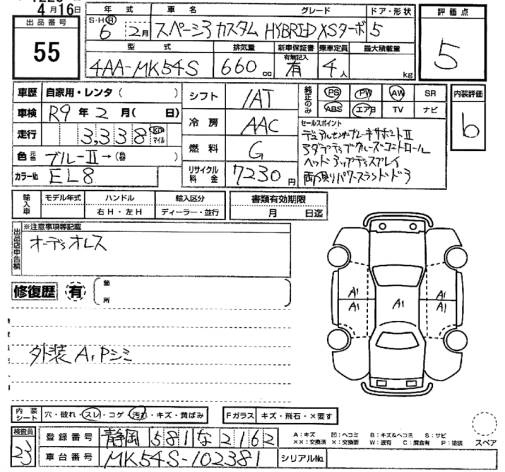 4月16日
出品番号
55
年式 車名 グレード ドア・形状
S・H・R 6年 2月 スペーシアカスタム HYBRID XSターボ 5
型式 排気量 新車保証書 有無記入 乗車定員 最大積載量
4AA-MK54S 660cc 有 4人 kg
評価点
5
車歴 自家用・レンタ( )
車検 R9年 2月( 日)
走行 3,338 km マイル
色 元色 ブルーⅡ→(替 )
カラーNo. EL8
シフト IAT
冷房 AAC
燃料 G
リサイクル料金 7230円
純正のみ PS PW AW SR
ABS エアB TV ナビ
内装評価
b
セールスポイント
デュアルセンサーブレーキサポートⅡ
アダプティブクルーズコントロール
ヘッドアップディスプレイ
両側パワースライドドア
輸入車 モデル年式 ハンドル 輸入区分 書類有効期限
年 右H・左H ディーラー・並行 月 日迄
出品店申告欄 ※注意事項等記載
オーディオレス
修復歴 有 箇所
外装A,Pシミ
A1 A1 A1
A1 A1
内装シート 穴・破れ・スレ・コゲ・汚れ・キズ・黄ばみ Fガラス キズ・飛石・×要す
検査員 23
登録番号 静岡 581 な 2162
車台番号 MK54S-102381 シリアルNo.
A:キズ 凹:ヘコミ B:キズ&ヘコミ S:サビ
××:交換済 ×:要交換 W:波有 C:腐食有 P:塗装
スペア